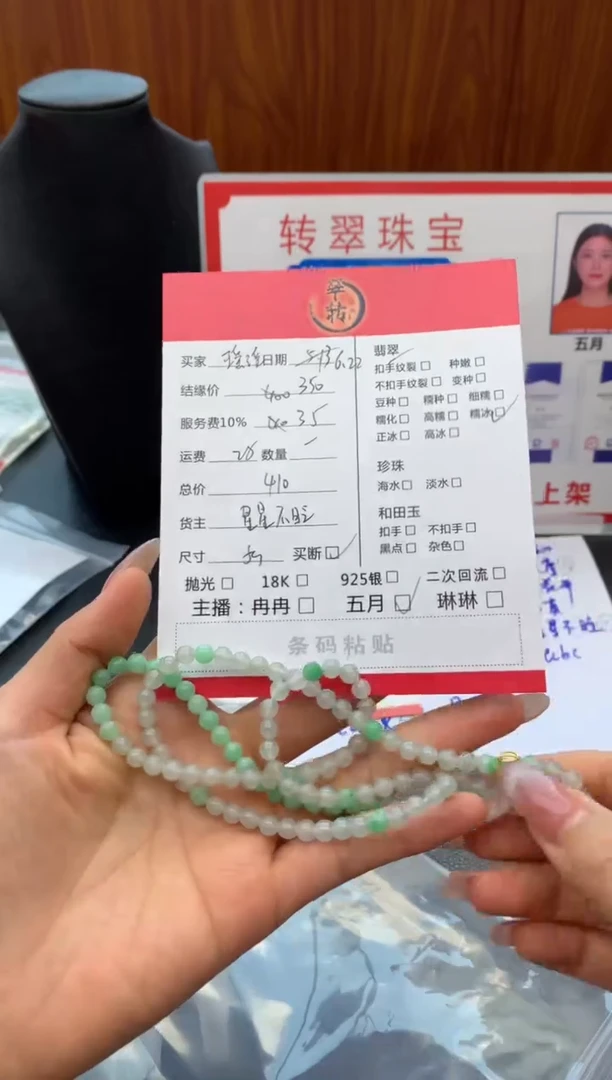 转翠珠宝
翠转
买家 日期 6.22
结缘价 400 350
服务费10% 35
运费 数量
总价 410
货主 星星不眨
尺寸 买断☑
翡翠
扣手纹裂☐ 种嫩☐
不扣手纹裂☐ 变种☐
豆种☐ 糯种☐ 细糯☐
糯化☐ 高糯☐ 糯冰☑
正冰☐ 高冰☐
珍珠
海水☐ 淡水☐
和田玉
扣手☐ 不扣手☐
黑点☐ 杂色☐
抛光☐ 18K☐ 925银☐ 二次回流☐
主播：冉冉☐ 五月☑ 琳琳☐
条码粘贴
五月
上架